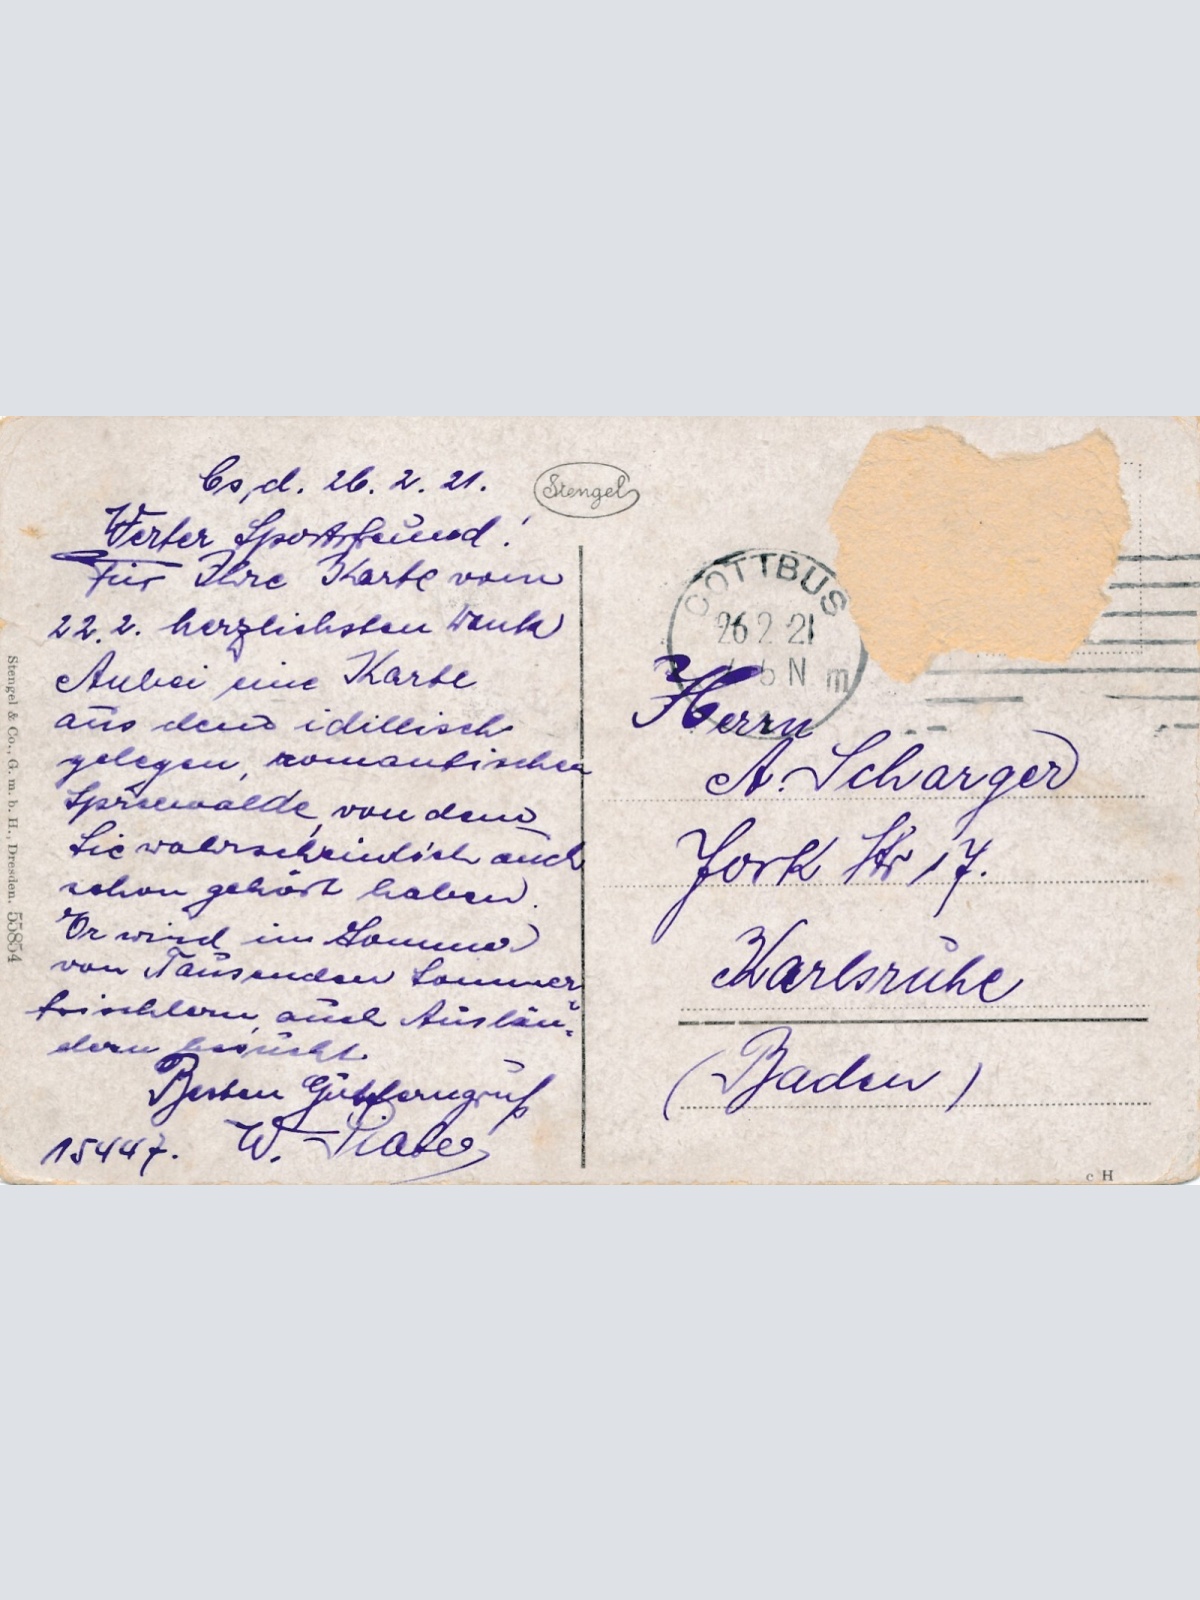 Cs, d. 26. 2. 21.
Werter Sportsfreund!
Für Ihre Karte vom
22. 2. herzlichsten Dank
Anbei eine Karte
aus dem idillisch
gelegen, romantischen
Spreewalde, von dem
Sie wahrscheindlich auch
schon gehört haben.
Er wird im Sommer
von Tausenden Sommer-
frischlern, auch Auslän-
dern besucht.
Besten Gutferngruß
15447. W.
Stengel
Stengel & Co., G. m. b. H., Dresden. 55854
COTTBUS
26 2 21
6 N
m
Herrn
A. Scharger
York Str 17.
Karlsruhe
(Baden)
c H